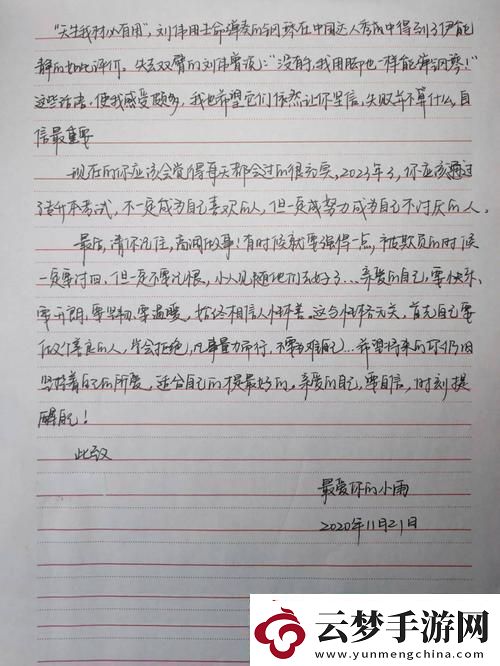 “天生我材必有用”，刘伟用生命弹奏的钢琴在中国达人秀成中得到了伊能
静的如此评价。失去双臂的刘伟曾说：“没有手，我用脚也一样能弹钢琴！”
这些话语，使我感受颇多，我也希望它们依然让你坚信，失败并不算什么，自
信最重要
现在的你应该会觉得每天都会过的很充实，2023年了，你应该通过
专升本考试，不一定成为自己喜欢的人，但一定成努力成为自己不讨厌的人。
最后，请你记住，高调做事！有时候就要强得一点，被欺负的时候
一定要讨回，但一定不要记恨，小人见随他们去好了…亲爱的自己，要快乐、
要开朗，要坚韧，要温暖，始终相信人性本善。这与性格无关，首先自己要
做个善良的人，学会拒绝，凡事量力而行，不要为难自己…希望将来的你仍旧
坚持着自己的所爱，适合自己的才是最好的。亲爱的自己，要自信，时刻提
醒自己！
此致
最爱你的小雨
2020年11月21日
云梦手游网
www.yunmengchina.com